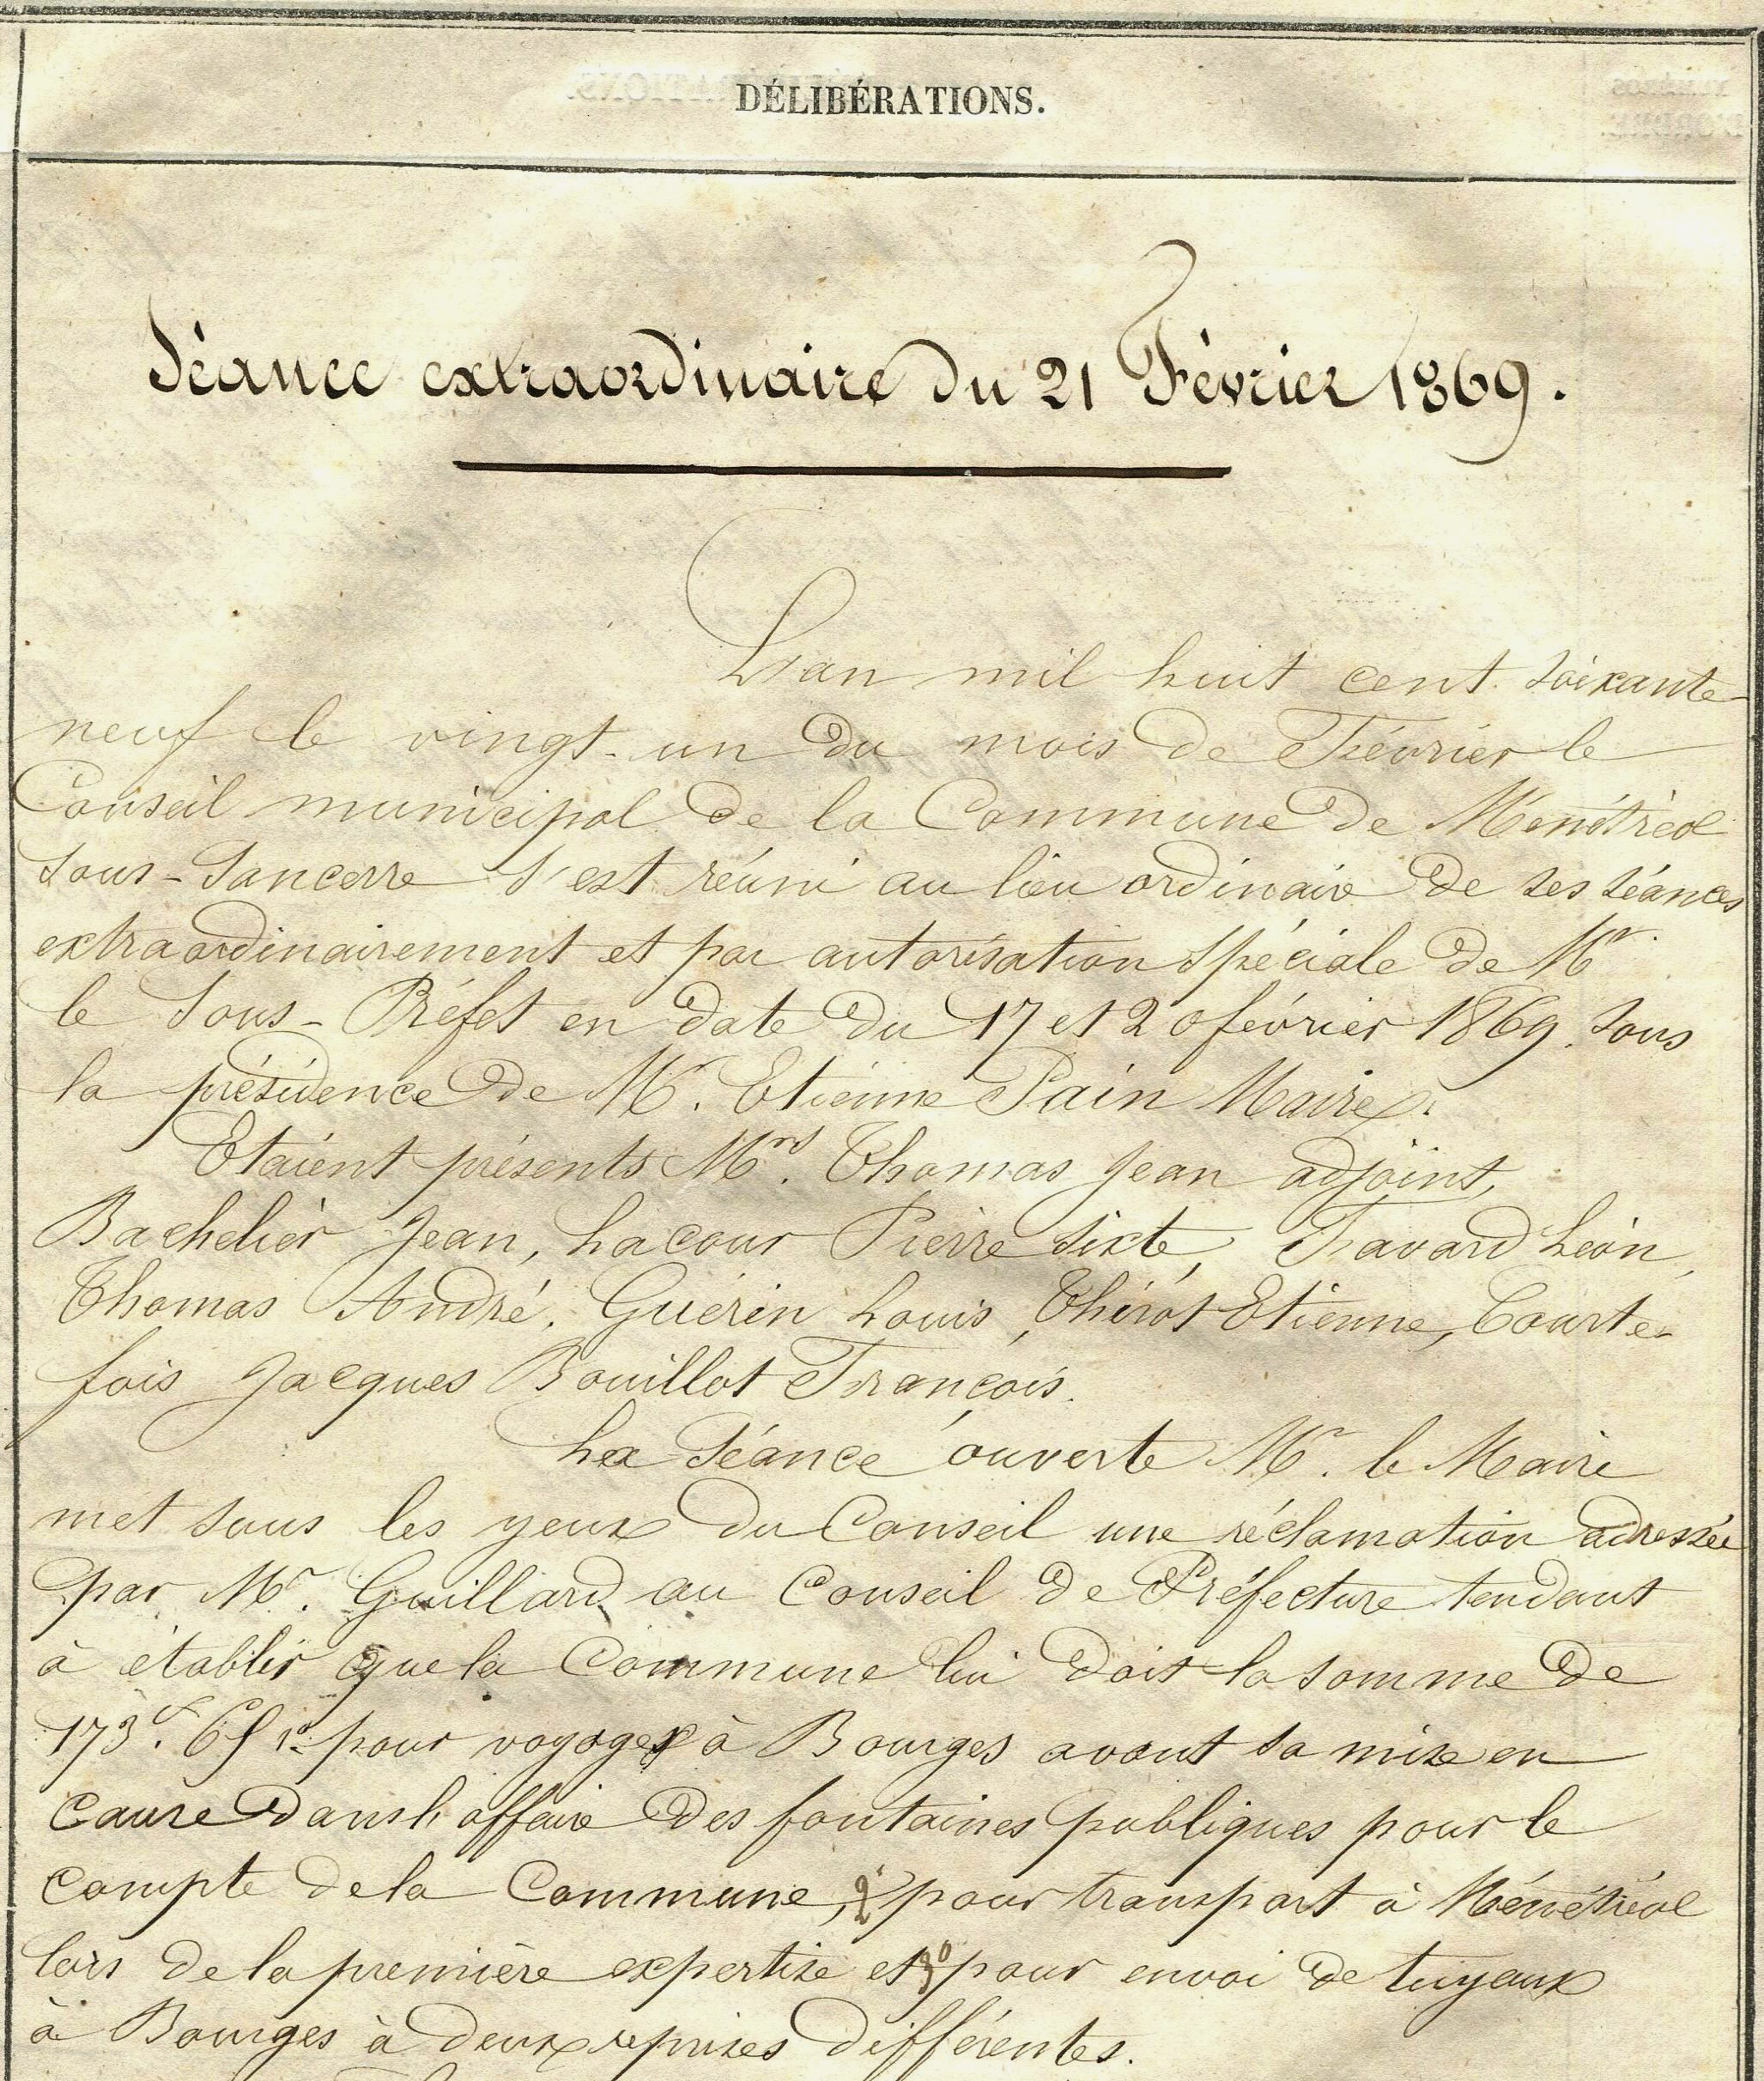 DÉLIBÉRATIONS.
Séance extraordinaire du 21 Février 1869.
L'an mil huit cent soixante
neuf le vingt-un du mois de Février le
Conseil municipal de la Commune de Ménétréol
Sous-Sancerre s'est réuni au lieu ordinaire de ses séances
extraordinairement et par autorisation spéciale de Mr
le Sous-Préfet en date du 17 et 20 février 1869. sous
la présidence de Mr. Etienne Pain Maire.
Etaient présents Mrs. Thomas Jean adjoint,
Bachelier Jean, Lacour Pierre Sixte, Favard Léon,
Thomas André, Guérin Louis, Thirot Etienne, Courte-
fois Jacques Bouillot François.
La Séance ouverte Mr. le Maire
met sous les yeux du Conseil une réclamation adressée
par Mr. Guillard au Conseil de Préfecture tendant
à établir que la Commune lui doit la somme de
173f. 65 1° pour voyages à Bourges avant sa mise en
cause dans l'affaire des fontaines publiques pour le
compte de la Commune, 2° pour transport à Ménétréol
lors de la première expertise et 3° pour envoi de tuyaux
à Bourges à deux reprises différentes.